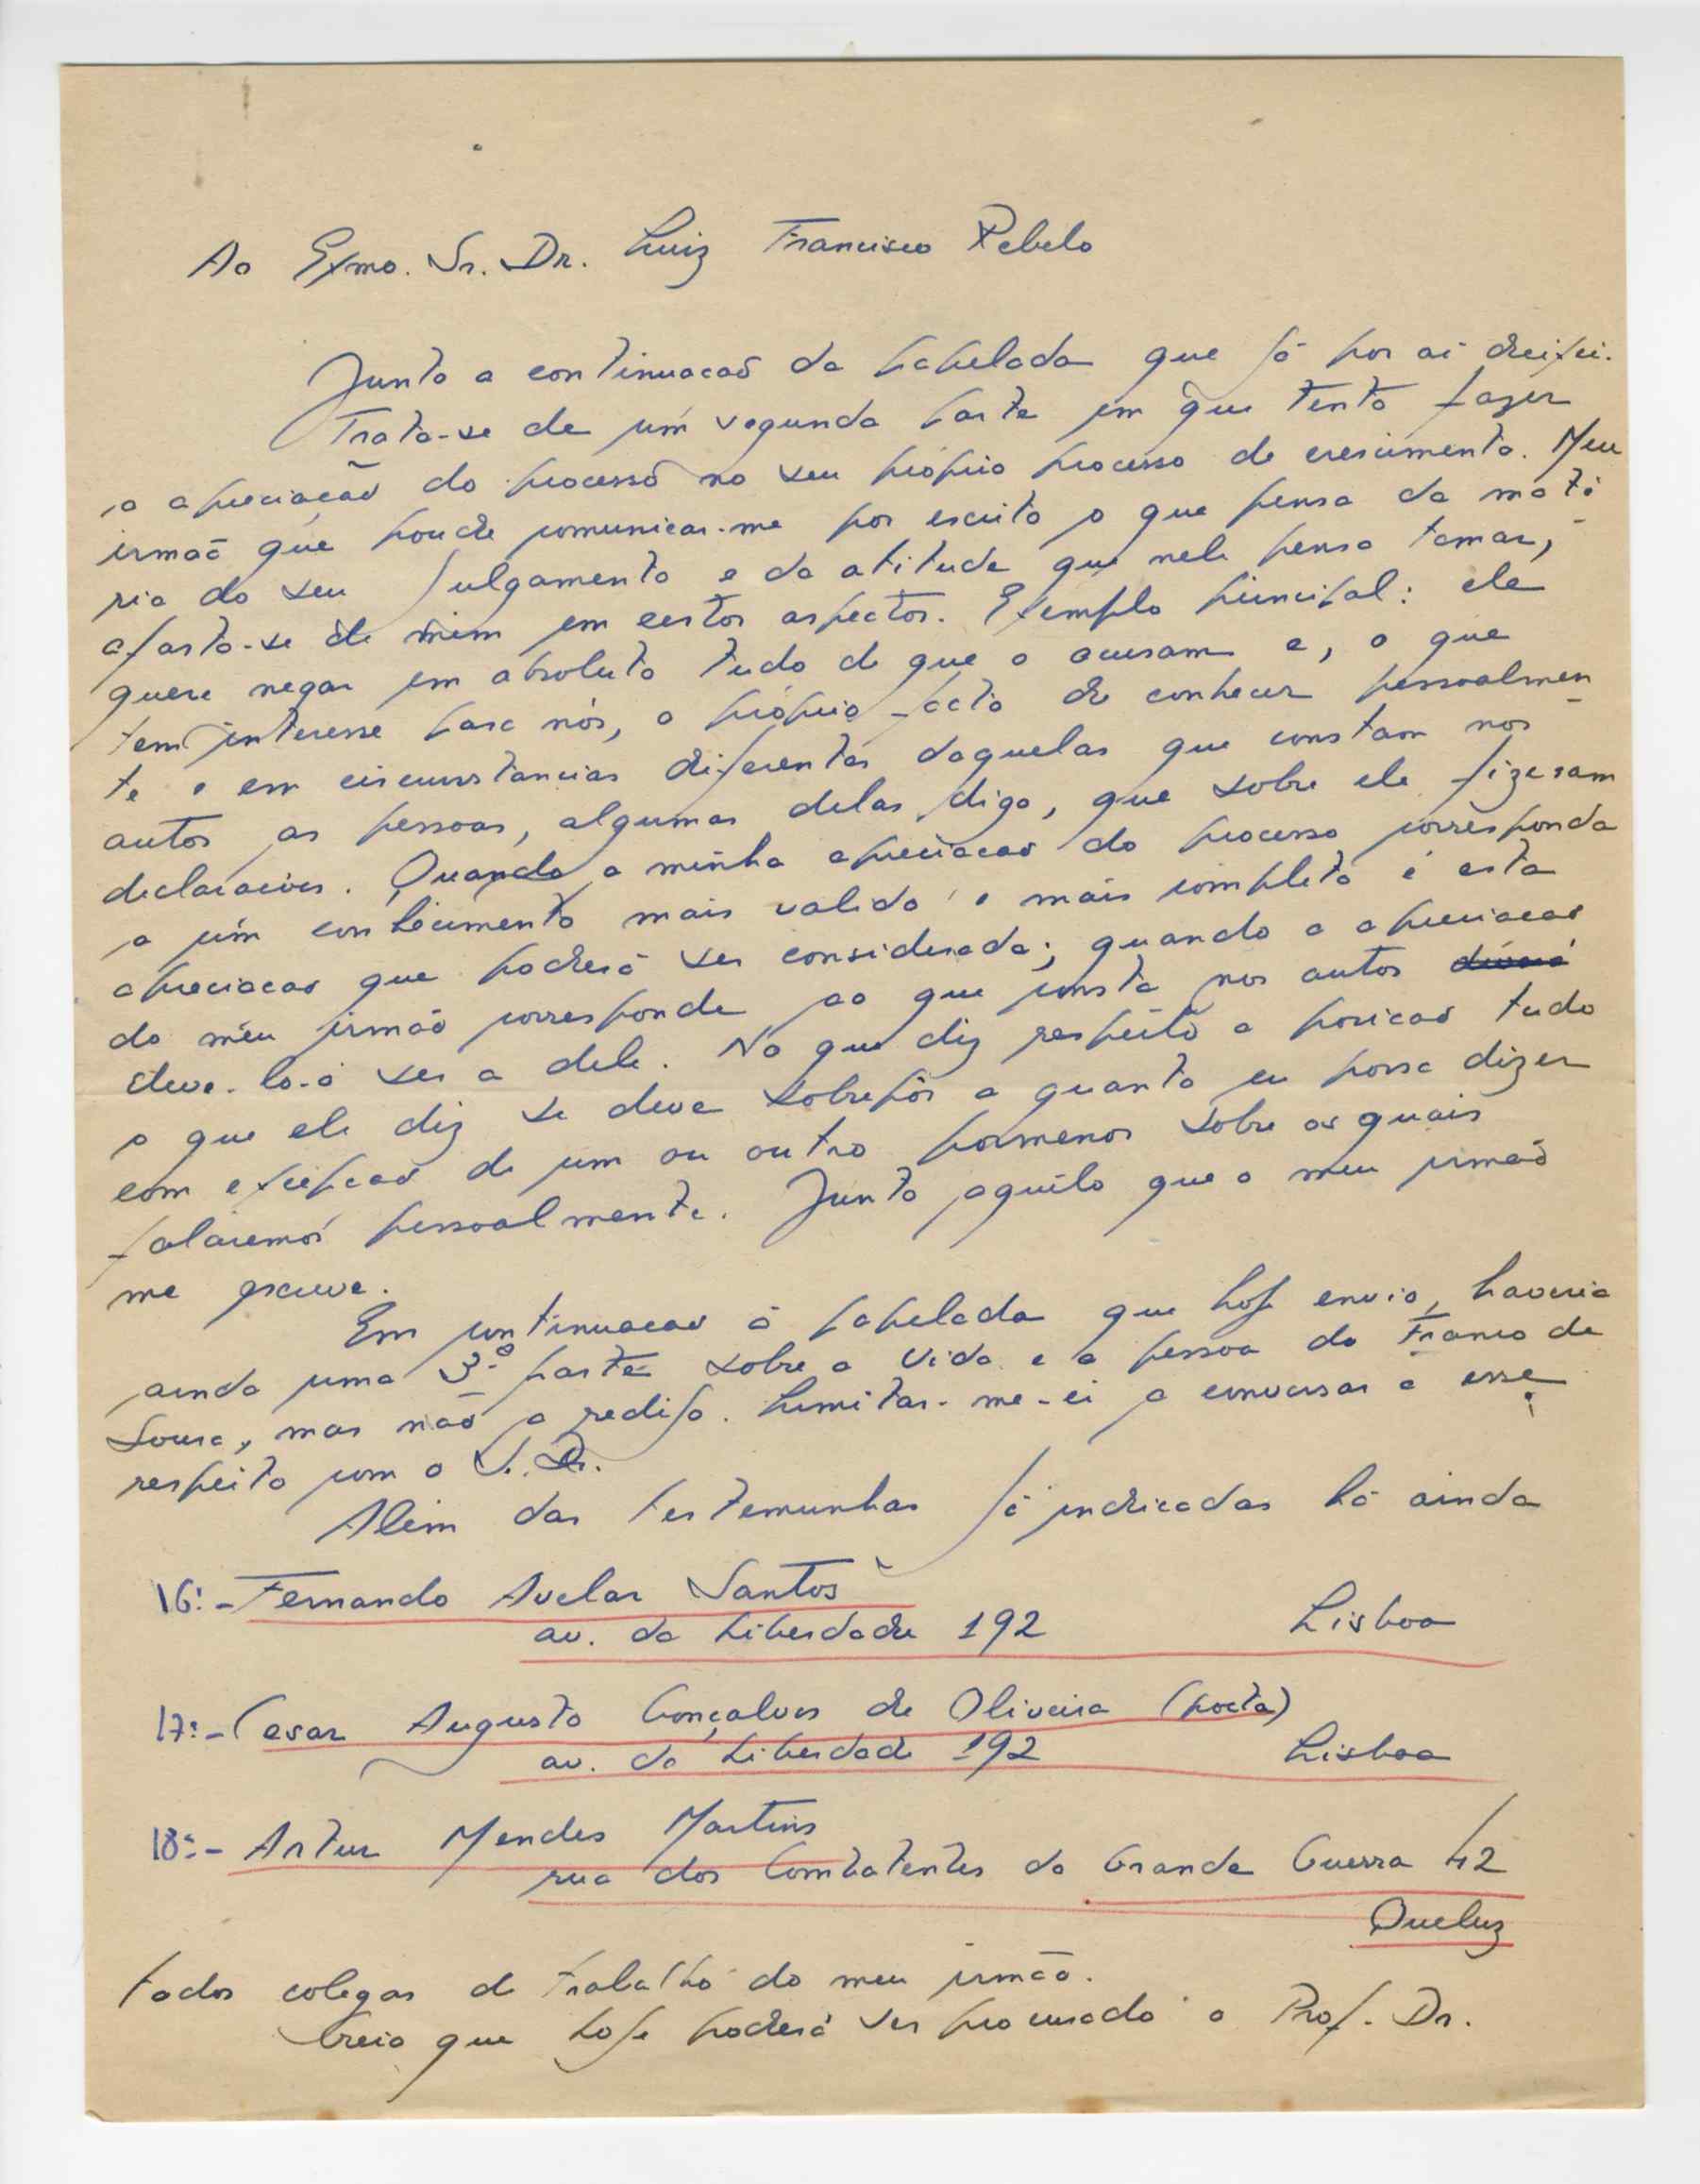 Ao Exmo. Sr. Dr. Luiz Francisco Rebelo
Junto a continuacaõ da papelada que já por aí deixei.
Trata-se de um segunda parte em que tento fazer
a apreciação do processo no seu próprio processo de crescimento. Meu
irmaõ que poude comunicar-me por escrito o que pensa da maté
ria do seu julgamento e da atitude que nele pensa tomar,
afasta-se de mim em certos aspectos. Exemplo principal: ele
quere negar em absoluto tudo de que o acusam e, o que
tem interesse para nós, o próprio facto de conhecer pessoalmen
te e em circunstancias diferentes daquelas que constam nos
autos as pessoas, algumas delas digo, que sobre ele fizeram
declaracões. Quando a minha apreciacao do processo corresponda
a um conhecimento mais valido e mais completo é esta
apreciacao que poderá ser considerada; quando a apreciacao
do meu irmaõ corresponde ao que consta nos autos
deve-lo-á ser a dele. No que diz respeito a posicao tudo
o que ele diz se deve sobrepôr a quanto eu possa dizer
com excepcao de um ou outro pormenor sobre os quais
falaremos pessoalmente. Junto aquilo que o meu irmaõ
me escreve.
Em continuacao á papelada que hoje envio, haveria
ainda uma 3ª parte sobre a vida e a pessoa do Franco de
Sousa, mas não a redijo. Limitar-me-ei a conversar a esse
respeito com o S. Dr.
Além das testemunhas já indicadas há ainda
16:- Fernando Avelar Santos
av. da Liberdade 192 Lisboa
17:- Cesar Augusto Gonçalves de Oliveira (poeta)
av. da Liberdade 192 Lisboa
18:- Artur Mendes Martins
rua dos Combatentes da Grande Guerra 42
Queluz
todos colegas de trabalho do meu irmão.
Creio que hoje poderá ser procurado o Prof. Dr.